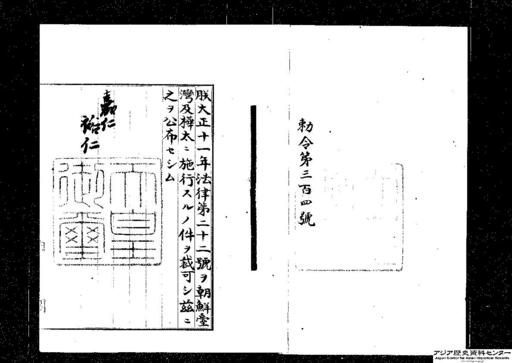 勅令第三百四號
朕大正十一年法律第二十二號ヲ朝鮮臺
灣及樺太ニ施行スルノ件ヲ裁可シ茲ニ
之ヲ公布セシム
嘉仁
裕仁
天皇
御璽
アジア歴史資料センター
Japan Center for Asian Historical Records